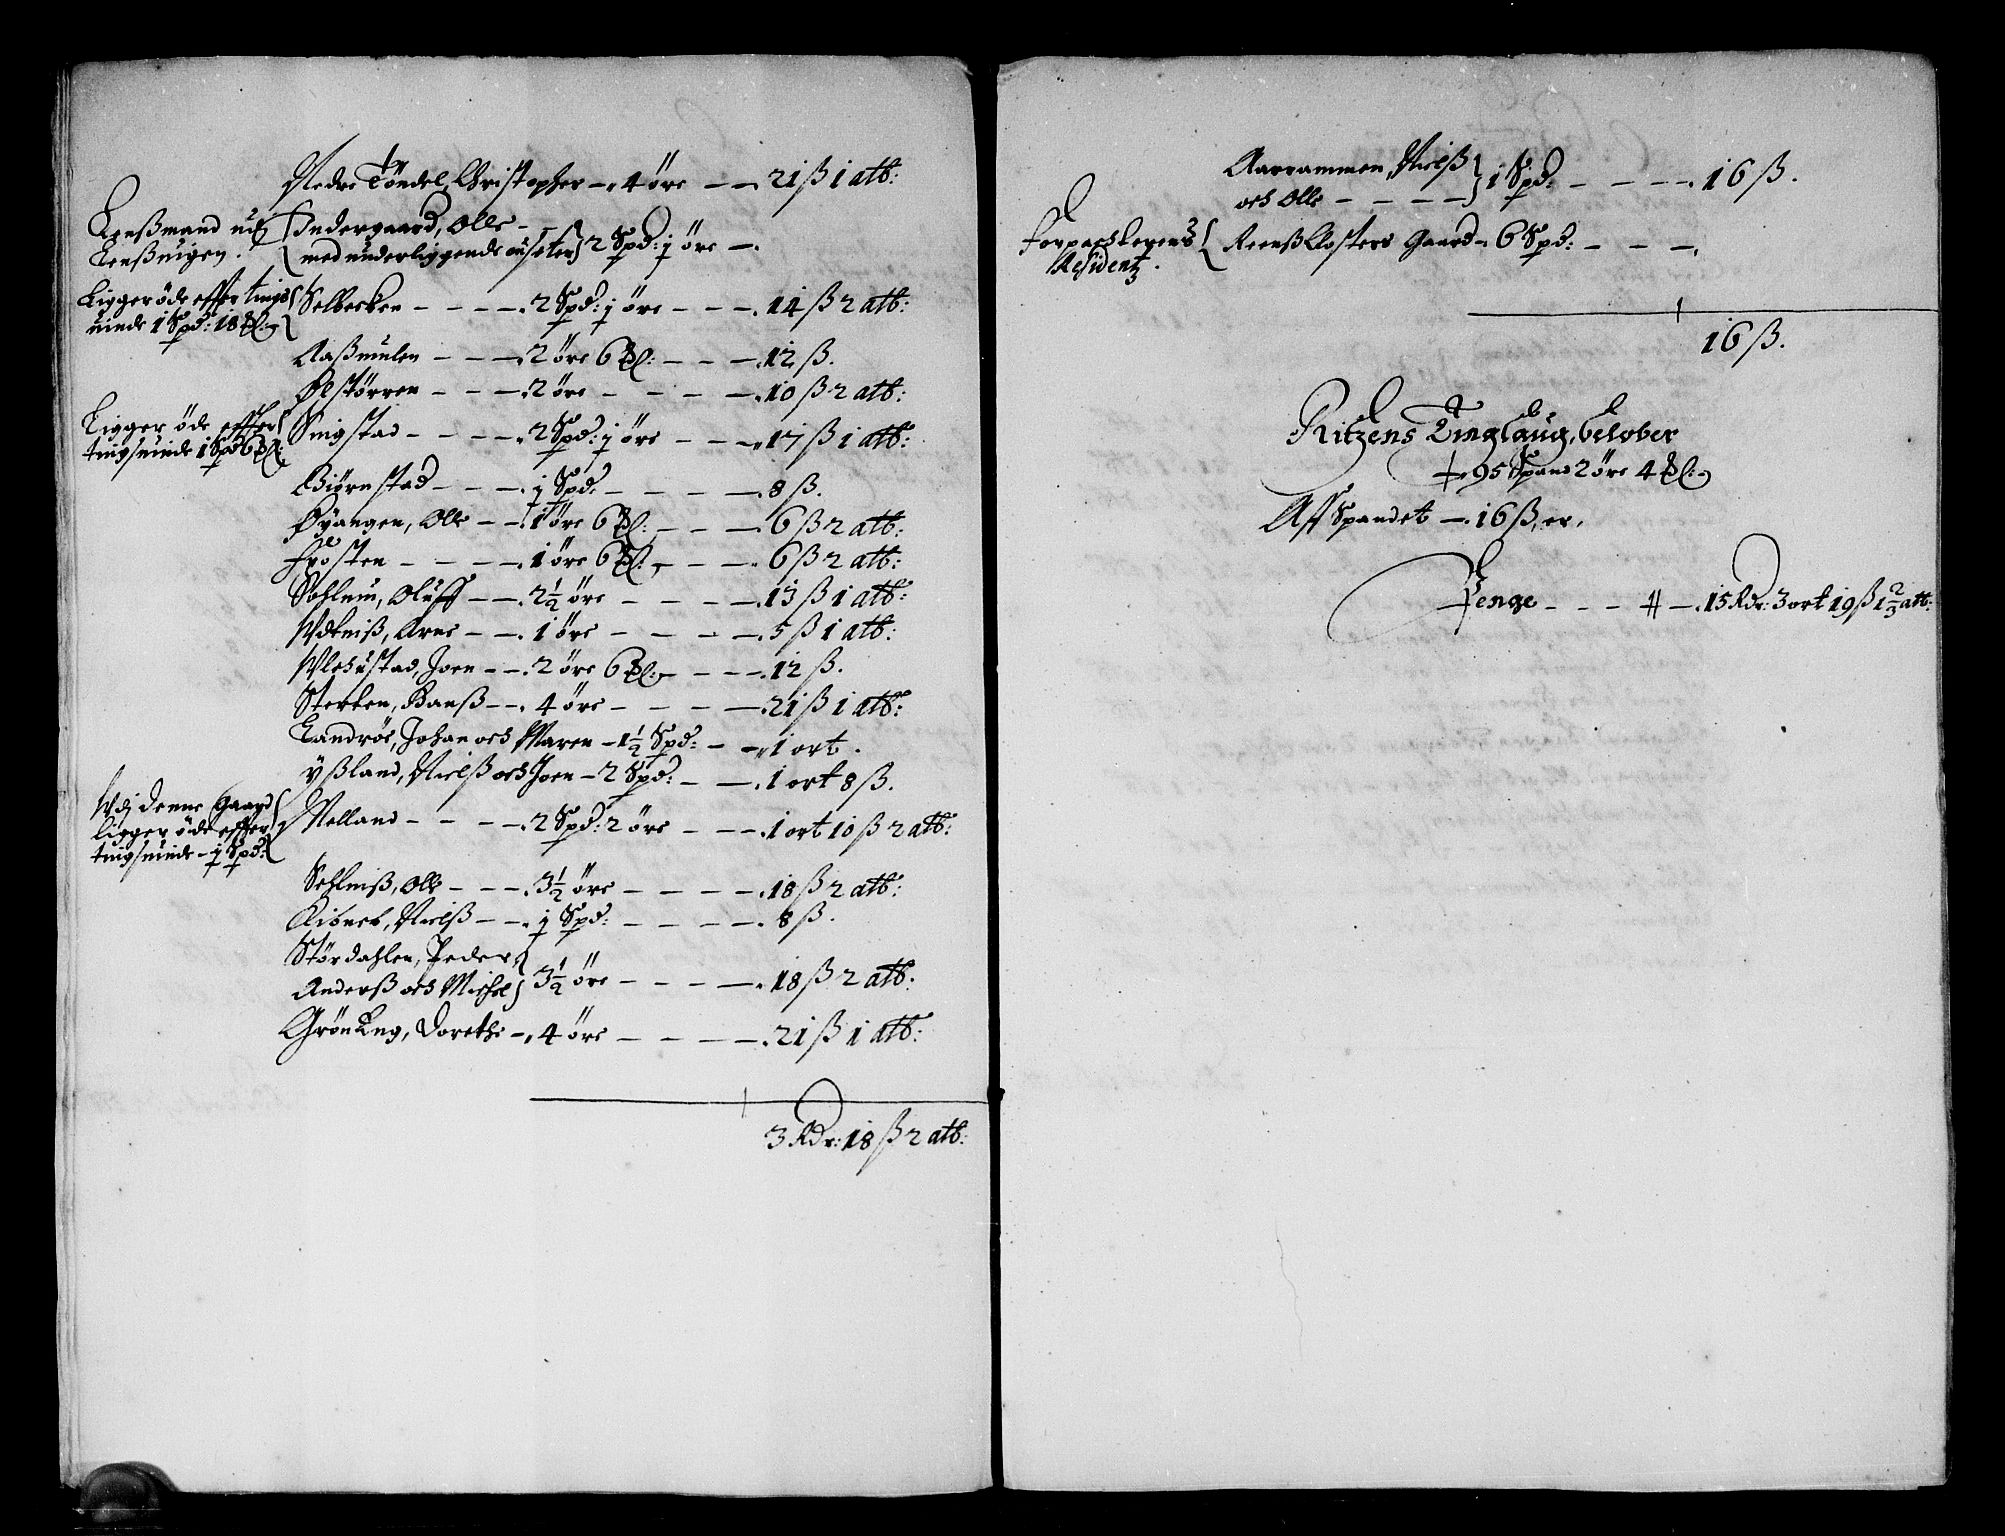 Nedre Töndel, Christopher — 4 öre — — 21 ß 1 alb:
Lenßmand udj
Lenßuigen.
Indergaard, Olle —
med underliggende
2 Spd: j öre —.
Ligger öde effter tings
uinde 1 Spd: 18 ℳl:
Selbecken — — — 2 Spd: j öre — — — 14 ß 2 alb:
Aaßmulen — — — 2 öre 6 ℳl: — — — 12 ß.
Ølstörren — — — 2 öre — — — — 10 ß 2 alb:
Ligger öde effter
tingsuinde 1 Spd 6 ℳl:
Singstad — — — 2 Spd: j öre — — — 17 ß 1 alb:
Biörnstad — — — j Spd: — — — — 8 ß.
Øyangen, Olle — — 1 öre 6 ℳl: — — — 6 ß 2 alb:
Frösten — — — — 1 öre 6 ℳl: — — — 6 ß 2 alb:
Sohlem, Oluff — — 2½ öre — — — — 13 ß 1 alb:
Arne — — 1 öre — — — — 5 ß 1 alb:
Joen — — 2 öre 6 ℳl: — — — 12 ß.
Sterten, Hanß — — 4 öre — — — — 21 ß 1 alb:
Landröe, Johan och Maren — 1½ Spd: — — 1 ort.
Yßland, Nielß och Joen — 2 Spd: — — 1 ort 8 ß.
Udj denne Gaard
ligger öde effter
tingsuinde — j Spd:
Melland — — — 2 Spd: 2 öre — — — 1 ort 10 ß 2 alb:
Sehlniß, Olle — — — 3½ öre — — — — 18 ß 2 alb:
Nielß — — j Spd: — — — — 8 ß.
Stördahlen, Peder,
Anderß och Michel
3½ öre — — — — 18 ß 2 alb:
Grön Eng, Dorethe — 4 öre — — — — 21 ß 1 alb:
3 Rdr: 18 ß 2 alb:
Aarrammen, Nielß
och Olle — — — —
1 Spd: — — — — 16 ß.
Forpachterens
Residentz.
Reenß Closters Gaard — 6 Spd: — — —
16 ß.
Ritzens Tinglaug, beløber
95 Spand 2 öre 4 ℳl:
Aff Spandet — 16 ß, er,
Penge — — — 15 Rdr: 3 ort 19 ß 1⅔ alb: